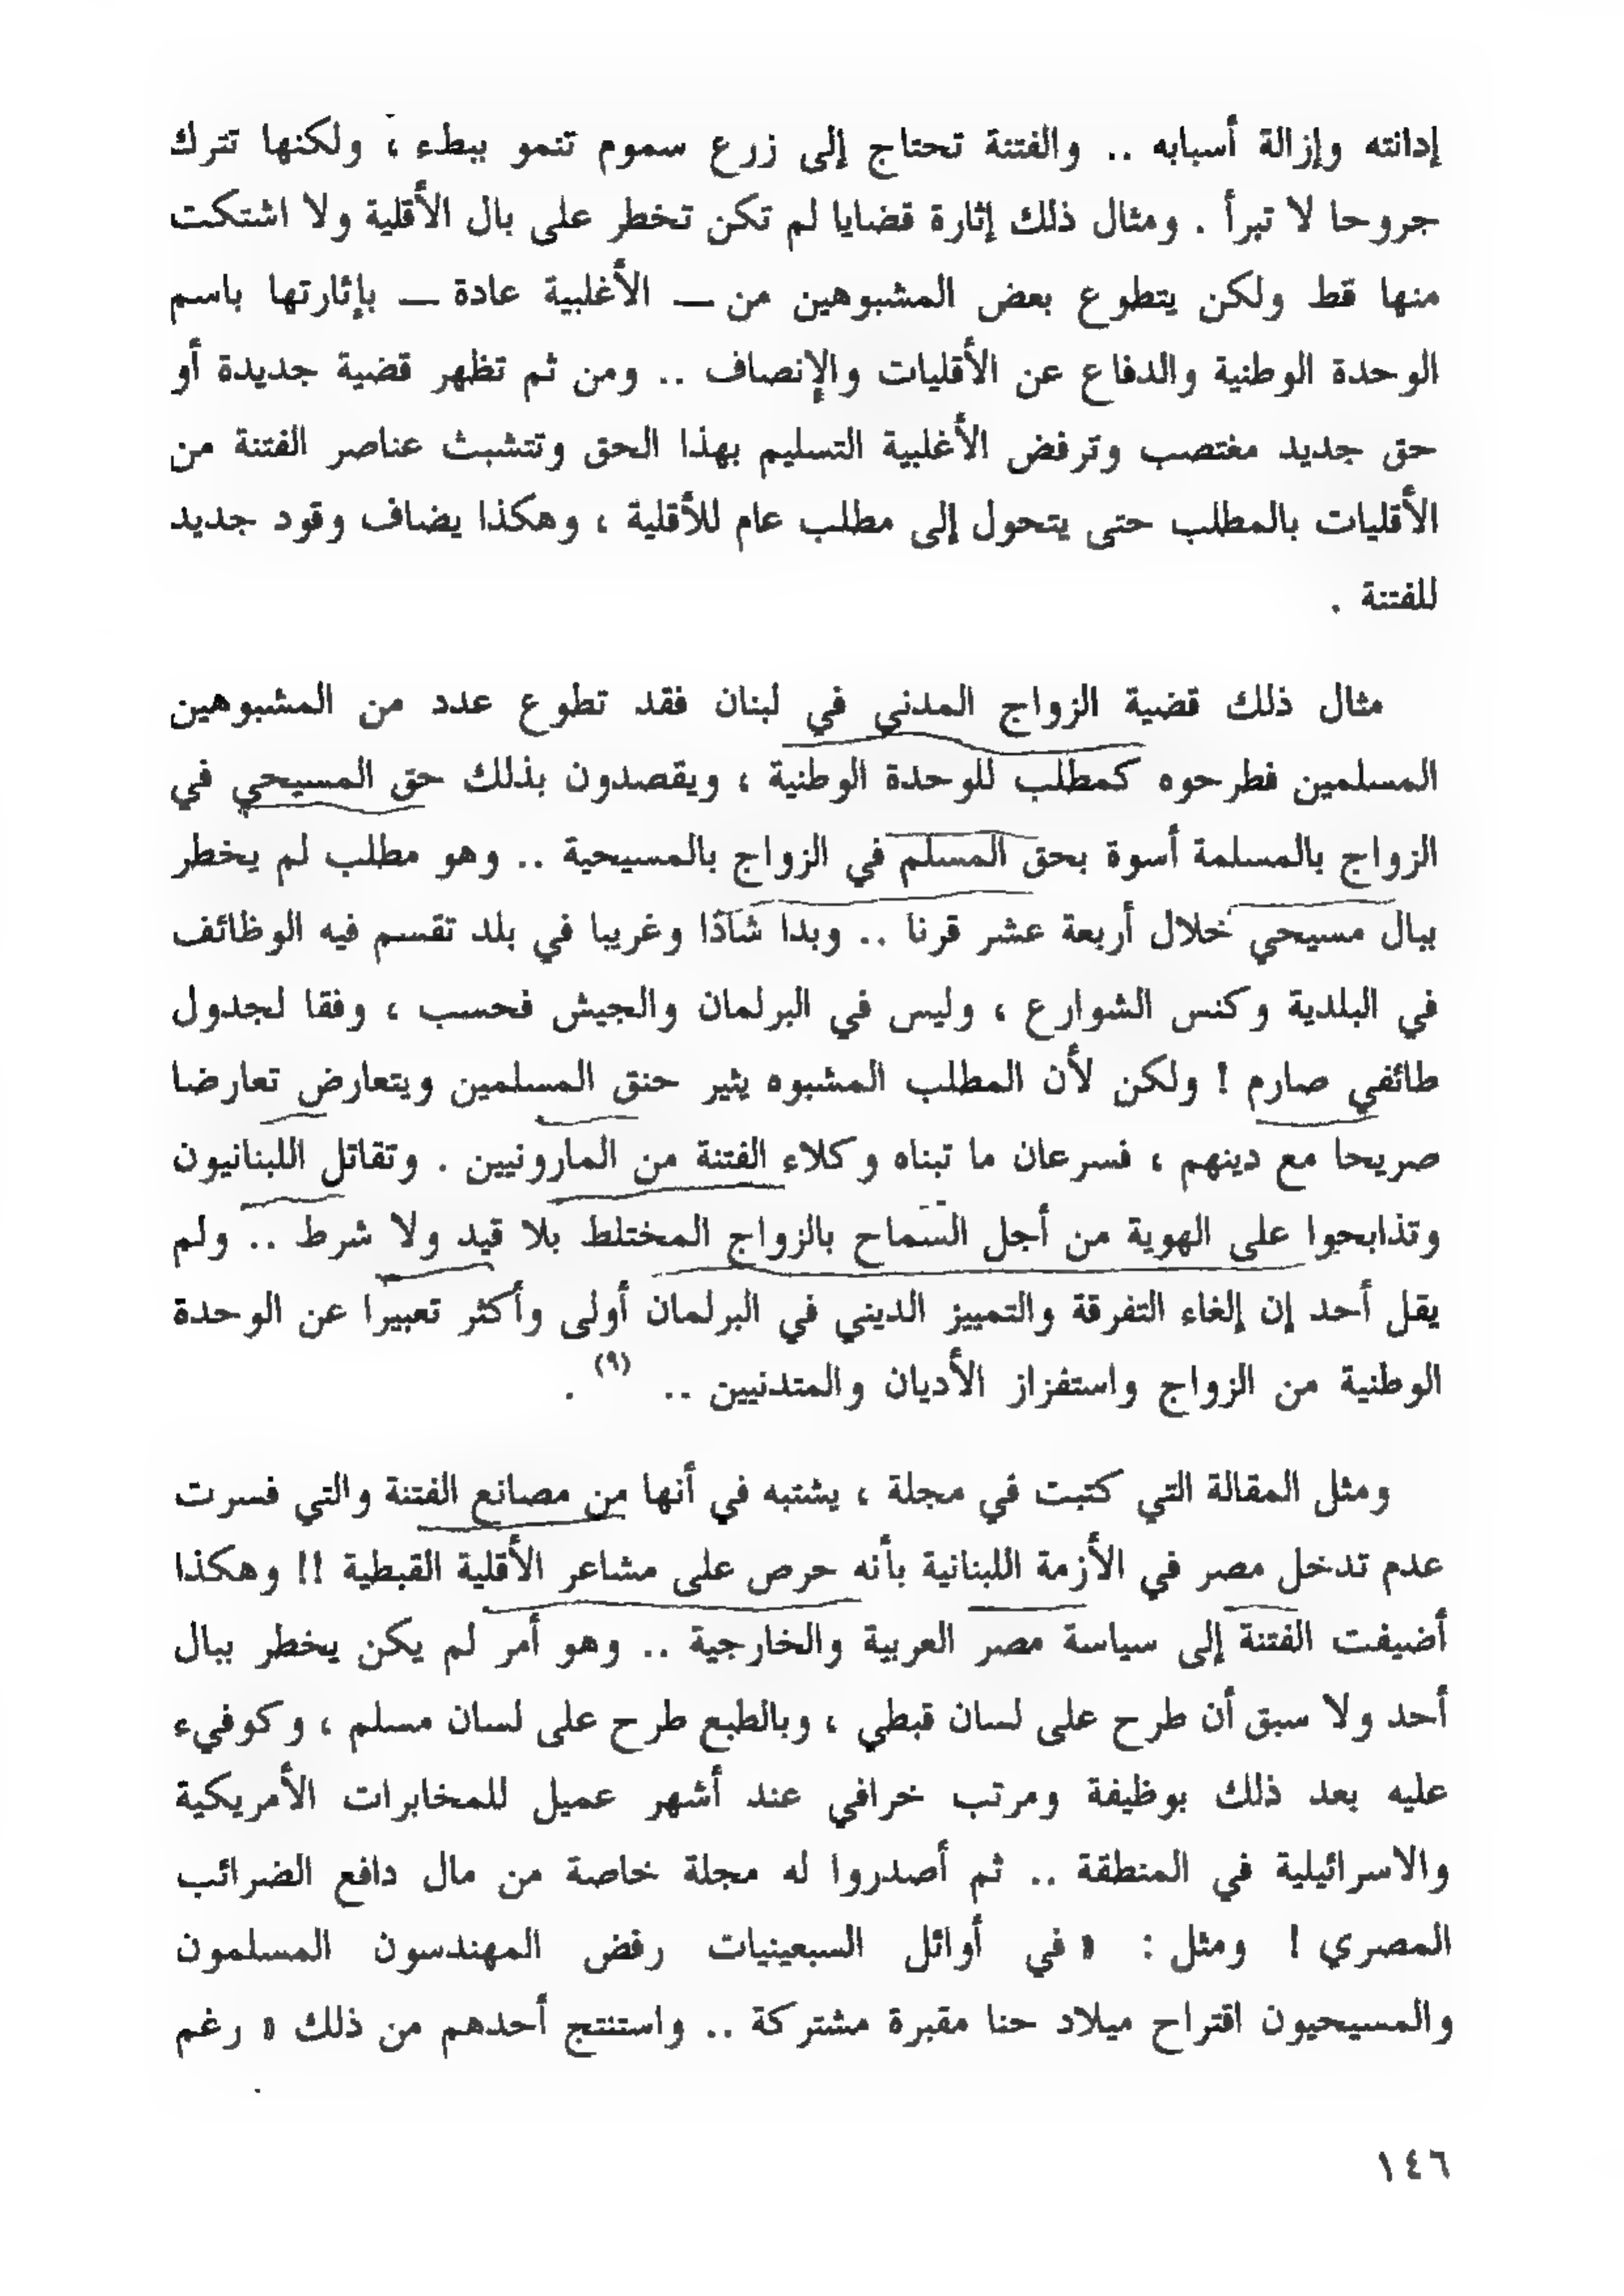 إدانته وإزالة أسبابه .. والفتنة تحتاج إلى زرع سموم تنمو ببطء ، ولكنها تترك
جروحا لا تبرأ . ومثال ذلك إثارة قضايا لم تكن تخطر على بال الأقلية ولا اشتكت
منها قط ولكن يتطوع بعض المشبوهين من — الأغلبية عادة — بإثارتها باسم
الوحدة الوطنية والدفاع عن الأقليات والإنصاف .. ومن ثم تظهر قضية جديدة أو
حق جديد مغتصب وترفض الأغلبية التسليم بهذا الحق وتتشبث عناصر الفتنة من
الأقليات بالمطلب حتى يتحول إلى مطلب عام للأقلية ، وهكذا يضاف وقود جديد
للفتنة .
مثال ذلك قضية الزواج المدني في لبنان فقد تطوع عدد من المشبوهين
المسلمين فطرحوه كمطلب للوحدة الوطنية ، ويقصدون بذلك حق المسيحي في
الزواج بالمسلمة أسوة بحق المسلم في الزواج بالمسيحية .. وهو مطلب لم يخطر
ببال مسيحي خلال أربعة عشر قرنا .. وبدا شاذا وغريبا في بلد تقسم فيه الوظائف
في البلدية وكنس الشوارع ، وليس في البرلمان والجيش فحسب ، وفقا لجدول
طائفي صارم ! ولكن لأن المطلب المشبوه يثير حنق المسلمين ويتعارض تعارضا
صريحا مع دينهم ، فسرعان ما تبناه وكلاء الفتنة من المارونيين . وتقاتل اللبنانيون
وتذابحوا على الهوية من أجل السماح بالزواج المختلط بلا قيد ولا شرط .. ولم
يقل أحد إن إلغاء التفرقة والتمييز الديني في البرلمان أولى وأكثر تعبيرا عن الوحدة
الوطنية من الزواج واستفزاز الأديان والمتدنيين .. (٩) .
ومثل المقالة التي كتبت في مجلة ، يشتبه في أنها من مصانع الفتنة والتي فسرت
عدم تدخل مصر في الأزمة اللبنانية بأنه حرص على مشاعر الأقلية القبطية !! وهكذا
أضيفت الفتنة إلى سياسة مصر العربية والخارجية .. وهو أمر لم يكن يخطر ببال
أحد ولا سبق أن طرح على لسان قبطي ، وبالطبع طرح على لسان مسلم ، وكوفيء
عليه بعد ذلك بوظيفة ومرتب خرافي عند أشهر عميل للمخابرات الأمريكية
والاسرائيلية في المنطقة .. ثم أصدروا له مجلة خاصة من مال دافع الضرائب
المصري ! ومثل : « في أوائل السبعينيات رفض المهندسون المسلمون
والمسيحيون اقتراح ميلاد حنا مقبرة مشتركة .. واستنتج أحدهم من ذلك « رغم
١٤٦